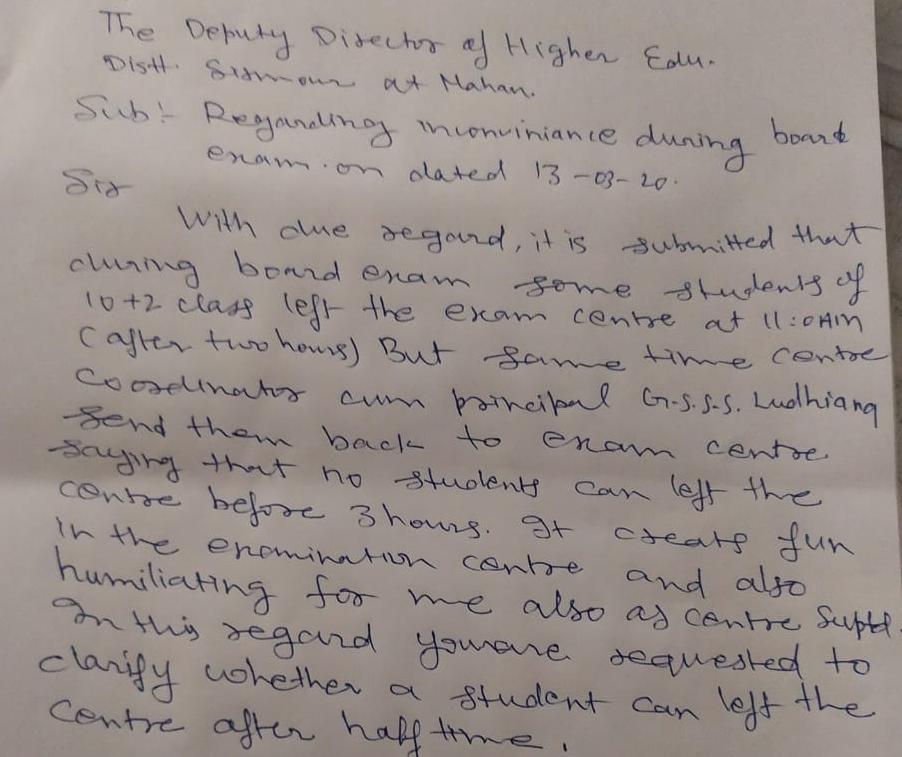 The Deputy Director of Higher Edu.
Distt. Sirmour at Nahan.
Sub:- Regarding inconviniance during board
exam. on dated 13-03-20.
Sir
With due regard, it is submitted that
during board exam some students of
10+2 class left the exam centre at 11:0AM
(after two hours) But same time centre
Coordinator cum principal G.S.S.S. Ludhiana
Send them back to exam centre
saying that no students can left the
centre before 3 hours. It creats fun
in the enamination centre and also
humiliating for me also as centre Suptd.
In this regard you are requested to
clarify whether a student can left the
Centre after half time.